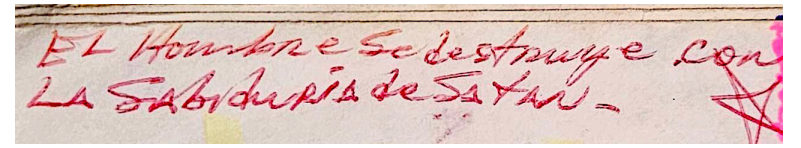 EL Hombre se destruye con
LA Sabiduría de Satan.